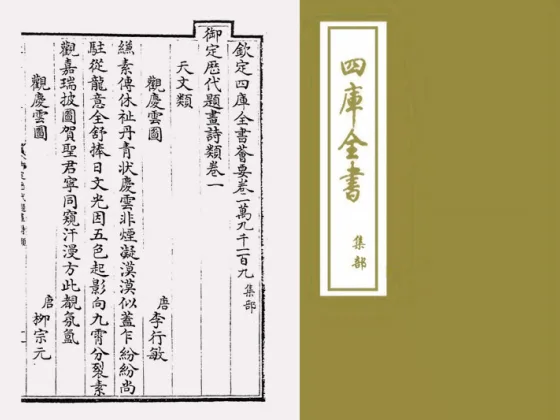 欽定四庫全書薈要卷一萬九千一百九 集部
御定歴代題畫詩類卷一
天文類
觀慶雲圖 唐 李行敏
縑素傳休祉丹青狀慶雲非煙凝漠漠似蓋乍紛紛尚
駐從龍意全舒捧日文光因五色起影向九霄分裂素
觀嘉瑞披圖賀聖君寧同窺汗漫方此覩氛氳
觀慶雲圖 唐 柳宗元
四庫全書
集部